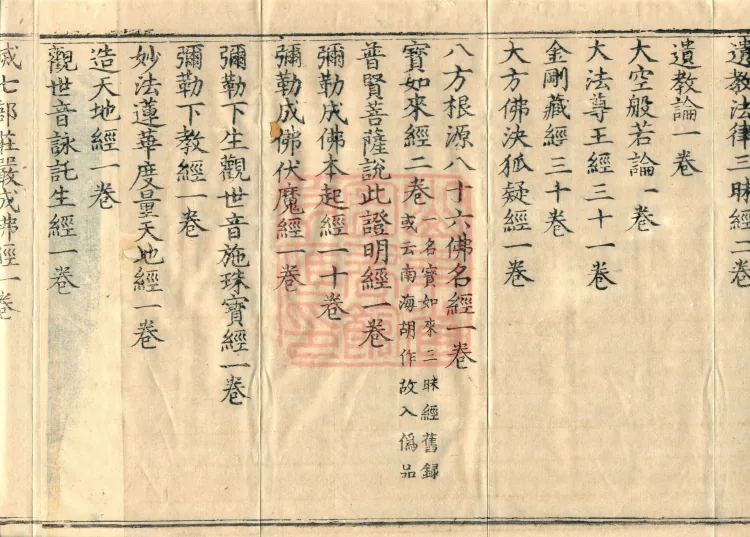 遺教法律三昧經二卷
遺教論一卷
大空般若論一卷
大法尊王經三十一卷
金剛藏經三十卷
大方佛決狐疑經一卷
八方根源八十六佛名經一卷
寶如來經二卷 一名寶如來三昧經舊録
或云南海胡作故入僞品
普賢菩薩說此證明經一卷
彌勒成佛本起經一十卷
彌勒成佛伏魔經一卷
彌勒下生觀世音施珠寶經一卷
彌勒下教經一卷
妙法蓮華度量天地經一卷
造天地經一卷
觀世音詠託生經一卷
滅七部莊嚴成佛經一卷